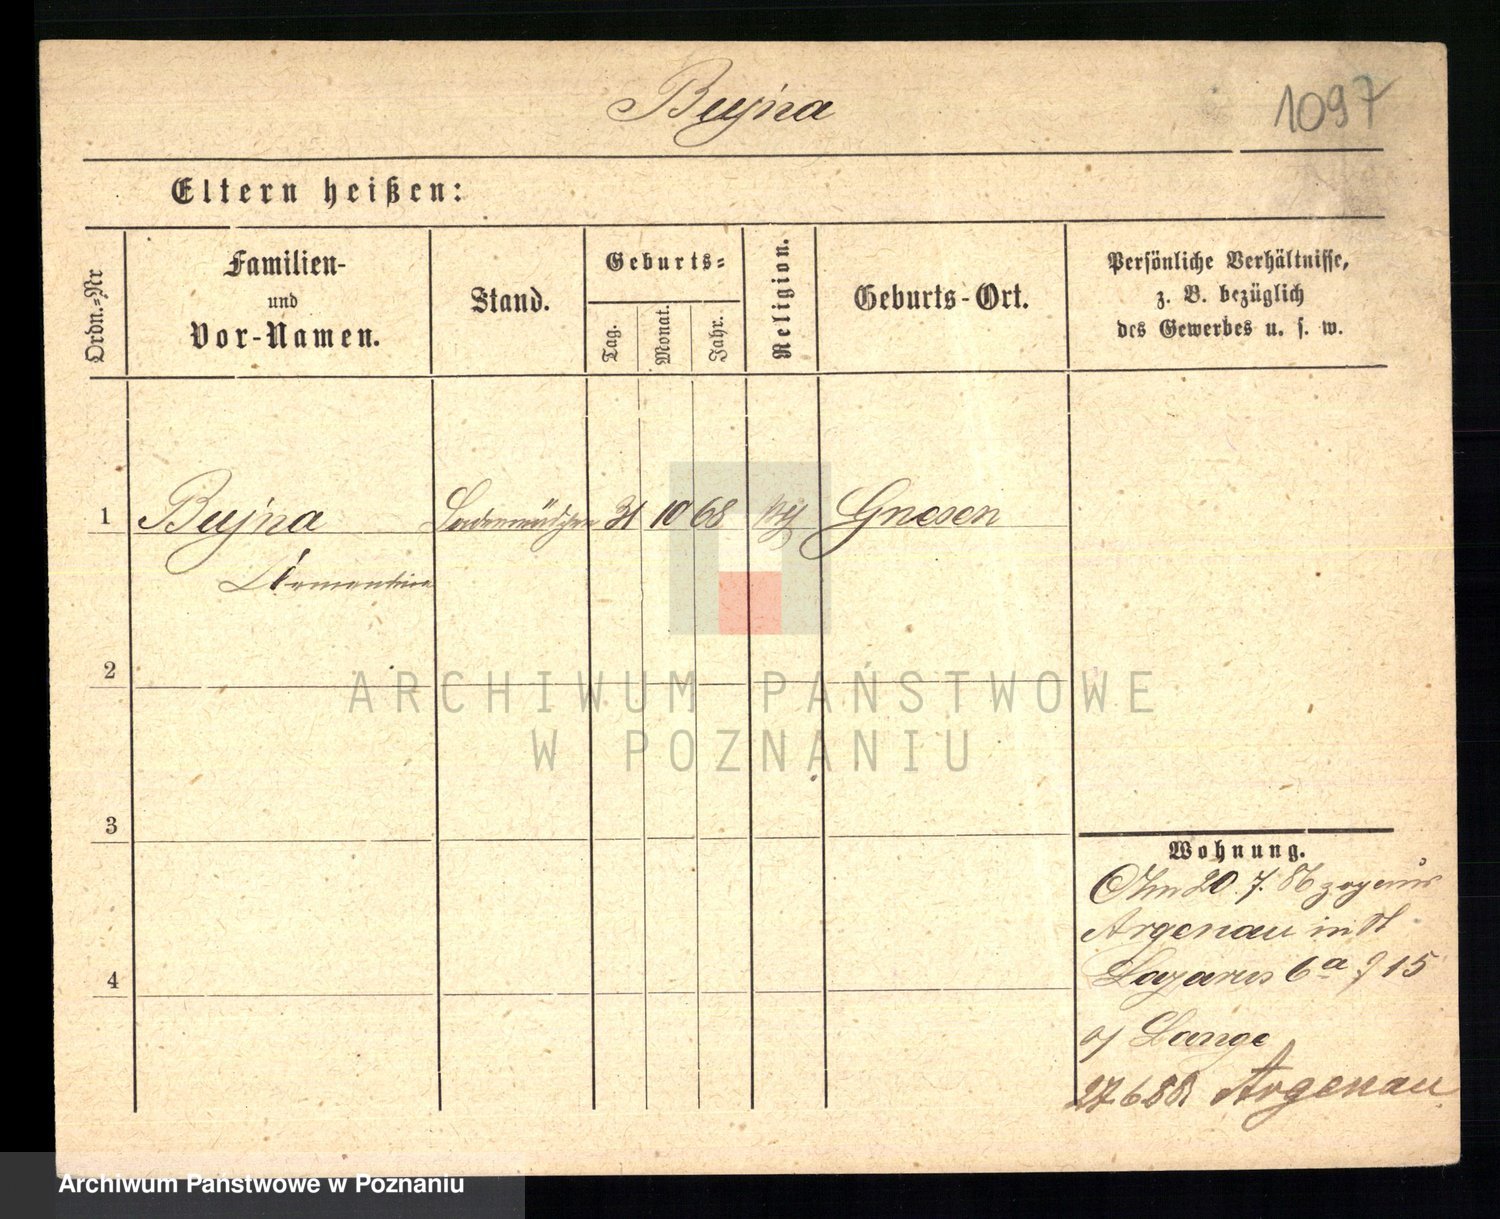 Bujna
1097
Eltern heißen:
Ordn.-Nr
Familien-
und
Vor-Namen.
Stand.
Geburts-
Tag.
Monat.
Jahr.
Religion.
Geburts-Ort.
Persönliche Verhältnisse,
z. B. bezüglich
des Gewerbes u. s. w.
1 Bujna Ladenmädchen 31 10 68 Gnesen
2
ARCHIWUM PAŃSTWOWE
W POZNANIU
3
Wohnung.
20. 7. 86 zog aus
Argenau in St
4
Lazarus 6a 15
Lange
27 6 88 Argenau
Archiwum Państwowe w Poznaniu